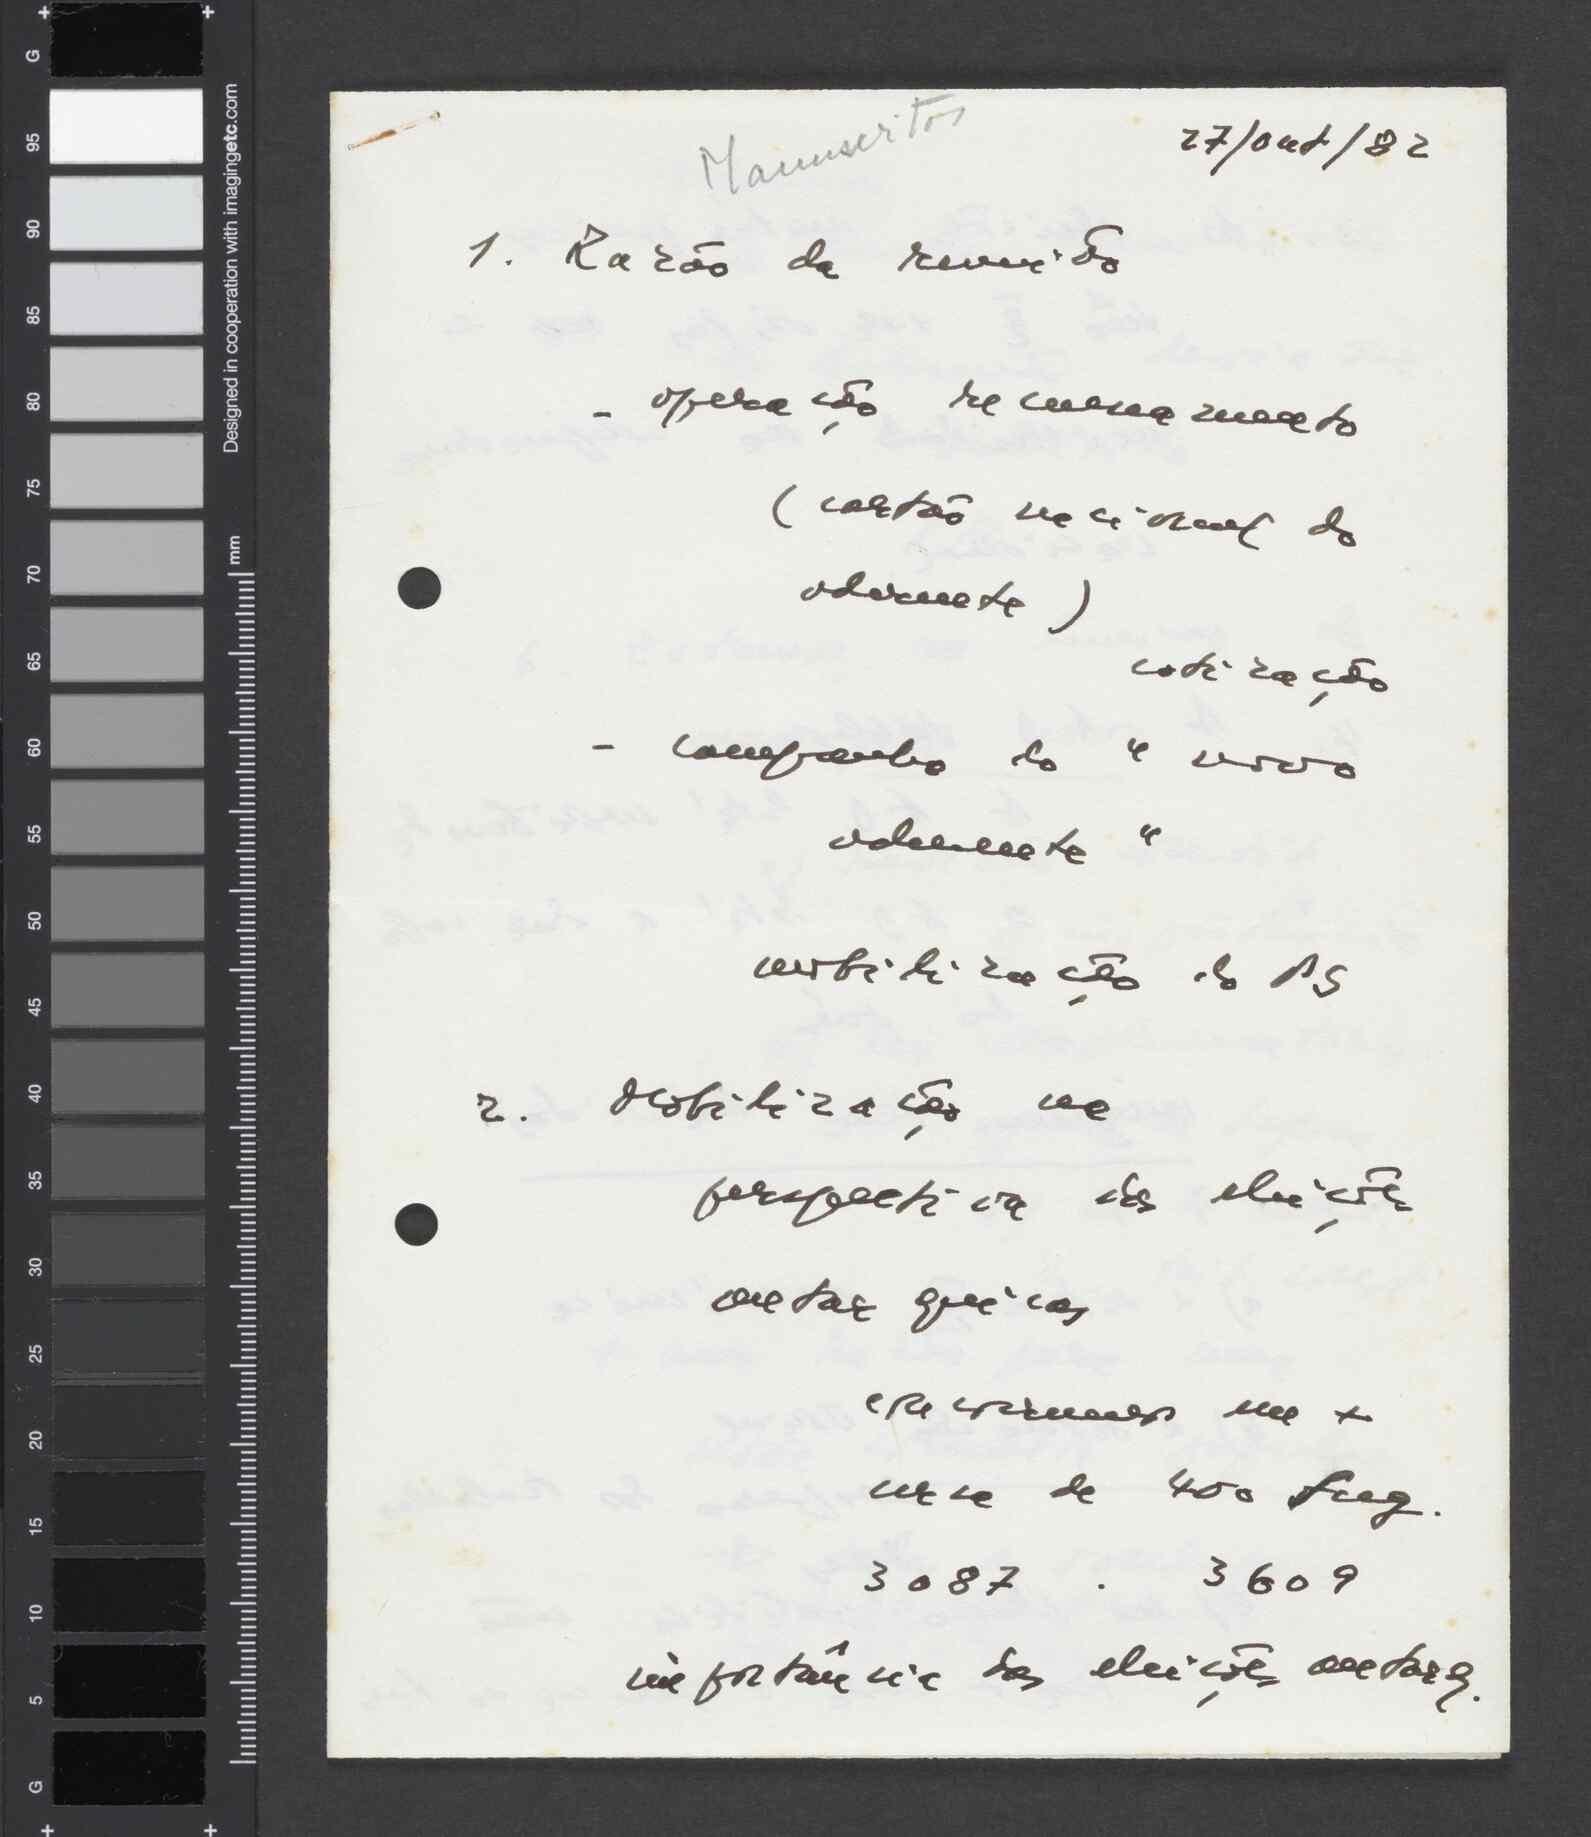 Manuscritos
27/out/82
1. Razão da reunião
- operação recenseamento
(cartão nacional do
aderente)
cotização
- campanha do "novo
aderente"
mobilização do PS
2. Mobilização na
perspectiva das eleições
autarquicas
concorremos em +
cerca de 400 freg.
3087 . 3609
importância das eleições autarq.
G
95
90
85
80
75
70
65
60
55
50
45
40
35
30
25
20
15
10
5
G
Designed in cooperation with imagingetc.com
mm